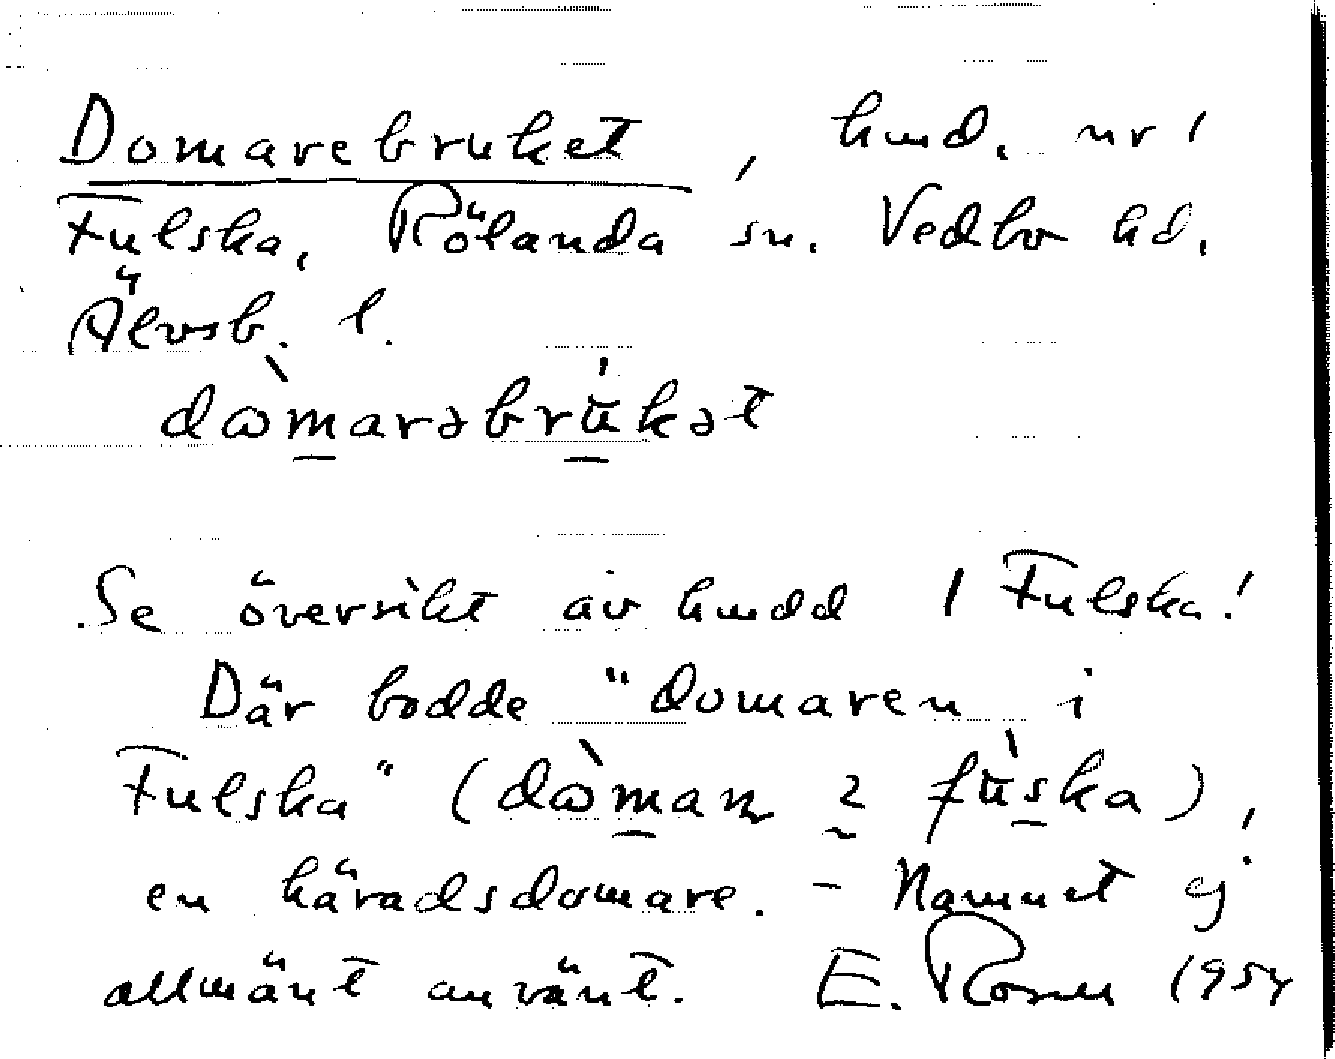 Domarebruket, hmd. nr 1
Fulska, Rölanda sn. Vedbo hd.
Älvsb. l.
dɷ̀marəbrúkət
Se översikt av hmdd i Fulska!
Där bodde "domaren i
Fulska" (dɷ̀man ɿ fùska),
en häradsdomare. – Namnet ej
allmänt använt. E. Rosell 1954